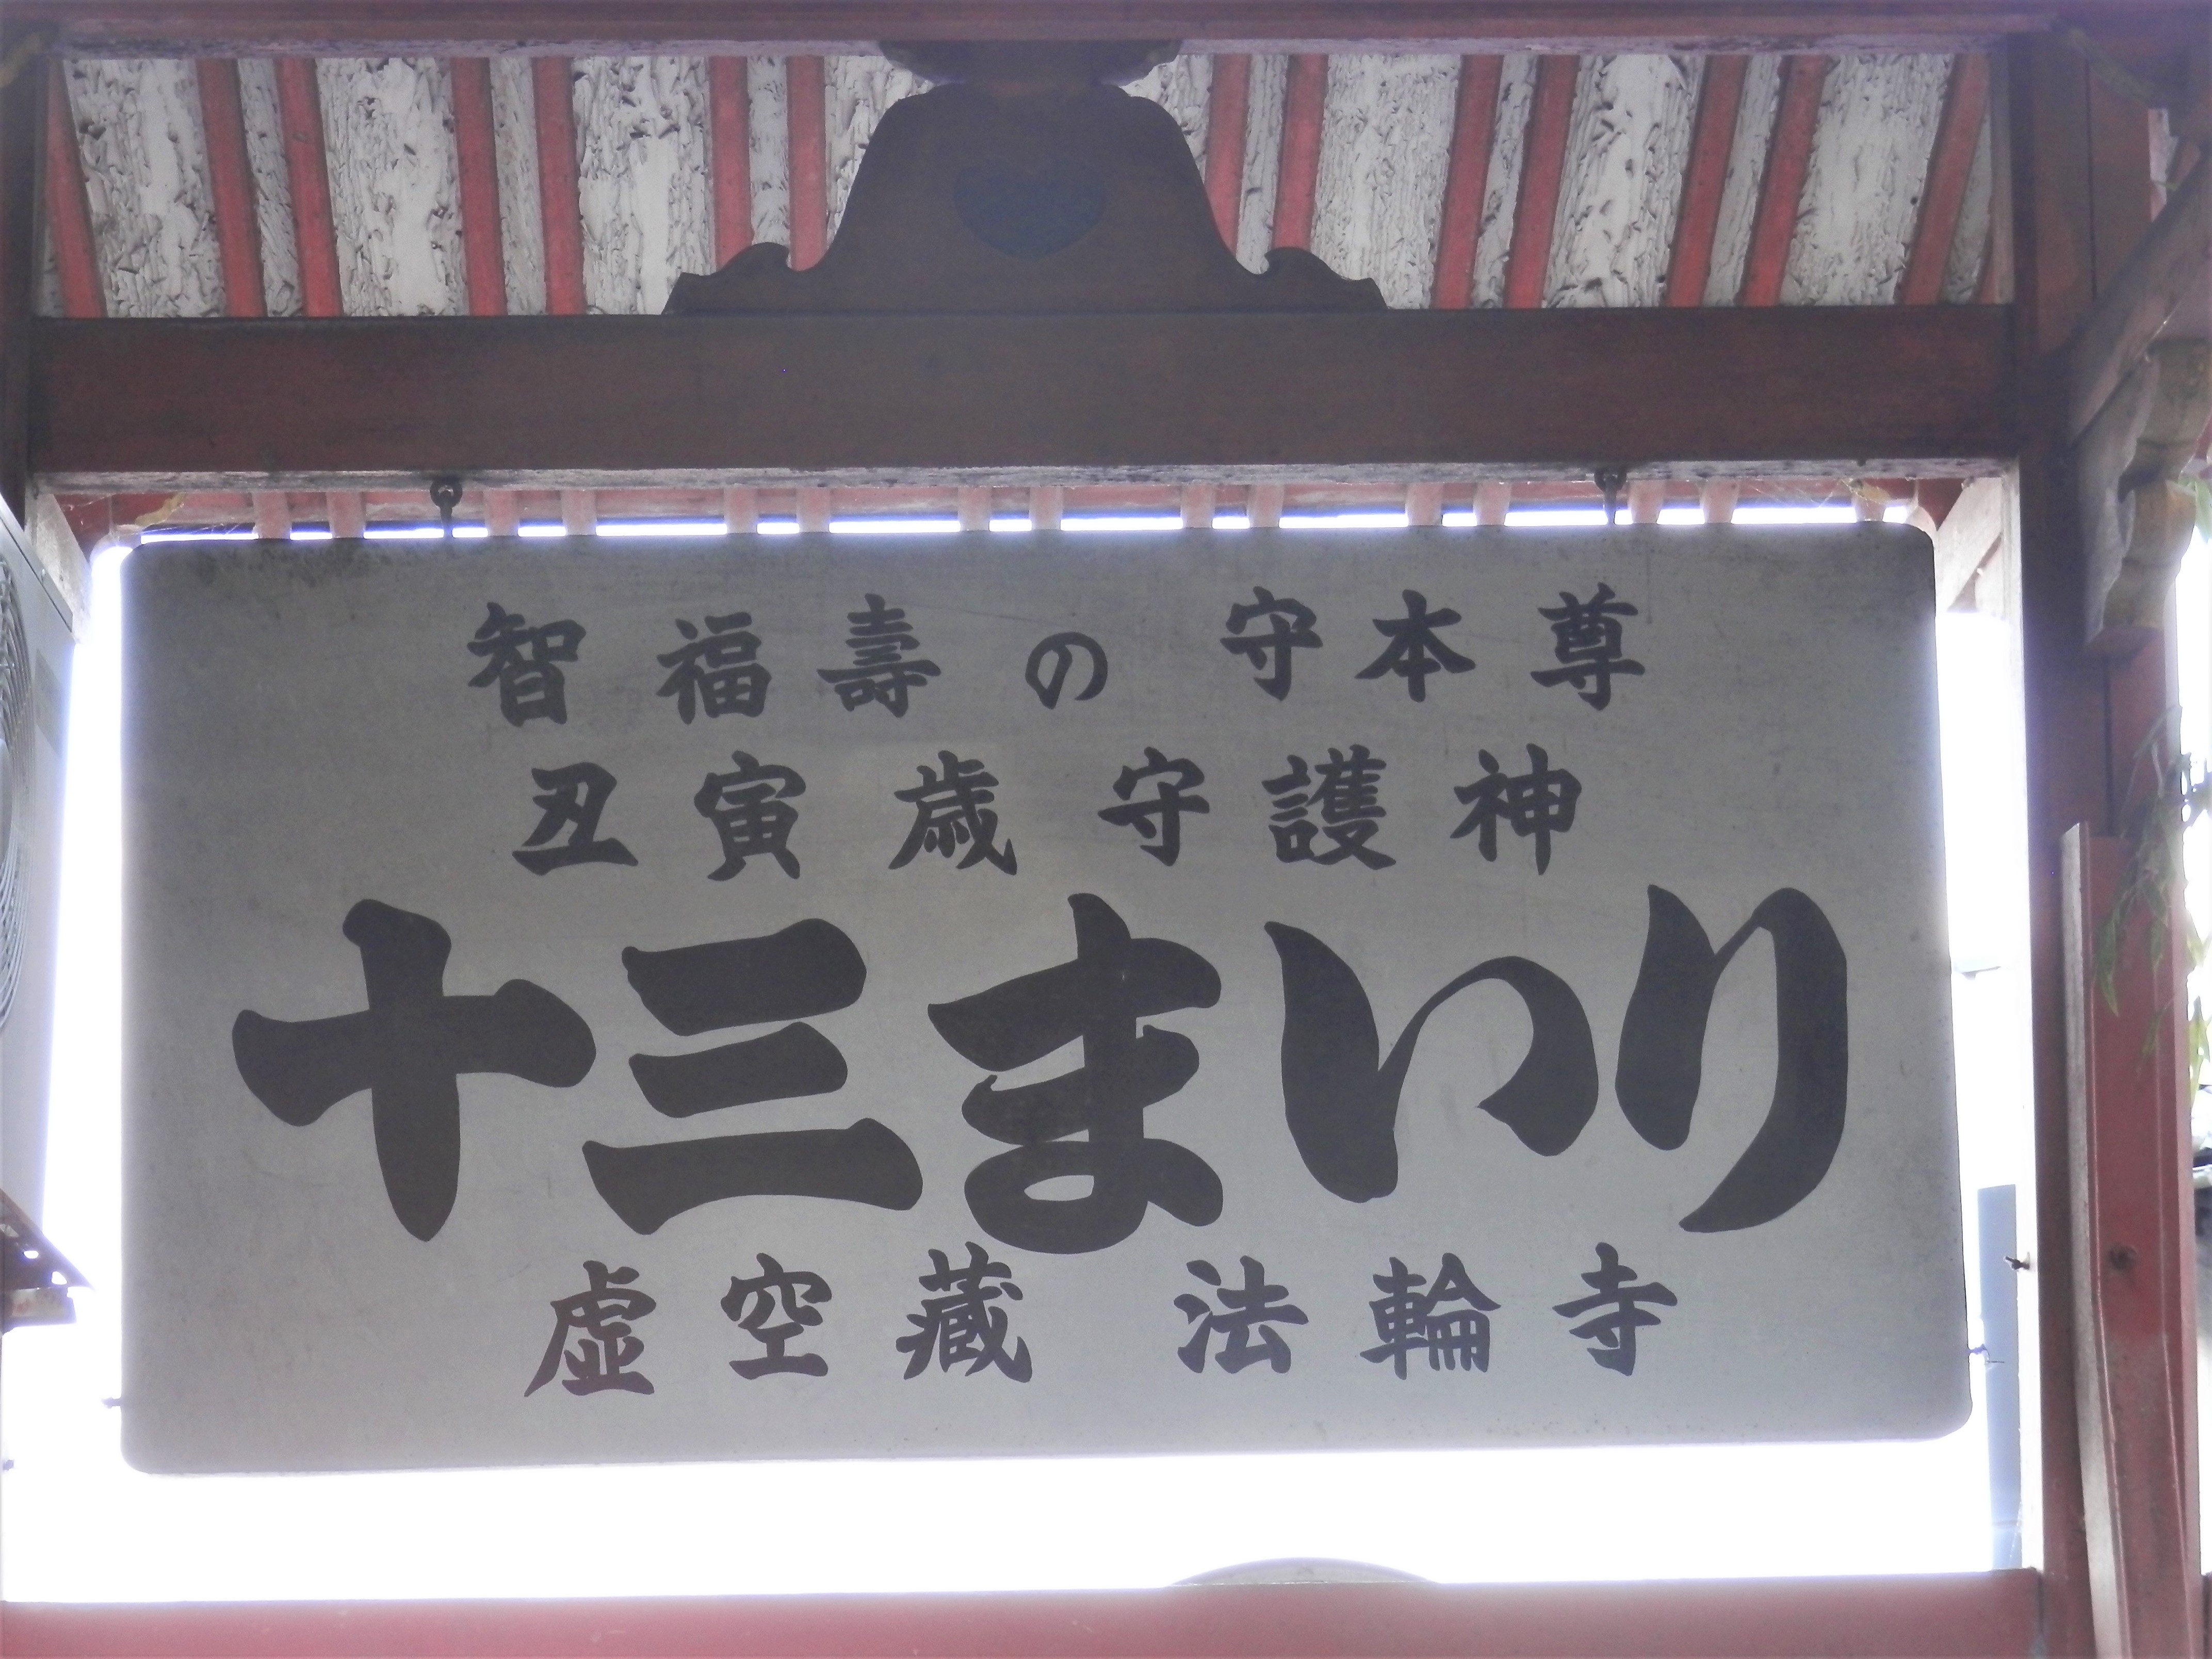 智福壽の守本尊
丑寅歳守護神
十三まいり
虚空藏 法輪寺